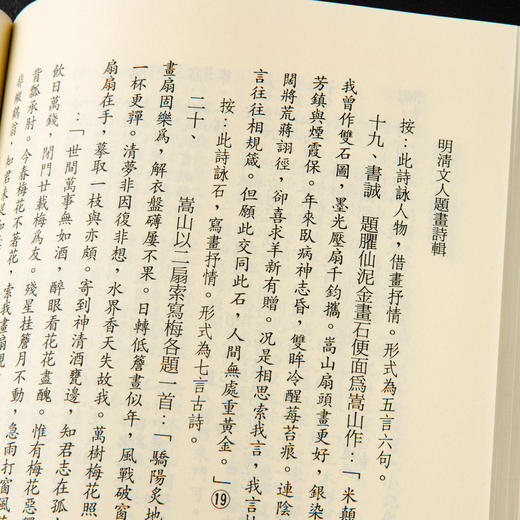 明清文人題畫詩輯
按:此詩詠人物,借畫抒情。形式為五言六句。
十九、書誠 題臞仙泥金畫石便面為嵩山作:「米顛
我曾作雙石圖,墨光壓扇千鈞攜。嵩山扇頭畫更好,銀染
芳鎮與煙霞保。年來臥病神志昏,雙眸冷醒莓苔痕。連陰
闊將荒蔣詡徑,卻喜求羊新有贈。况是相思索我言,我言
言往往相規箴。但願此交同此石,人間無處重黃金。」⑲
按:此詩詠石,寫畫抒情。形式為七言古詩。
二十、 嵩山以二扇索寫梅各題一首:「驕陽炙地
畫扇固樂為,解衣盤礴屢不果。日轉低簷晝似年,風戰破窗
一杯更嚲。清夢非因復非想,水界香天失故我。萬樹梅花照
扇扇在手,摹取一枝與亦頗。寄到神清酒甕邊,知君志在孤
:「世間萬事無如酒,醉眼看花花盡醜。惟有梅花惡
飲日萬錢,閉門廿載梅為友。殘星挂簷月不動,急雨打窗風
背瓢承肘。今春梅花不著花,索我畫扇